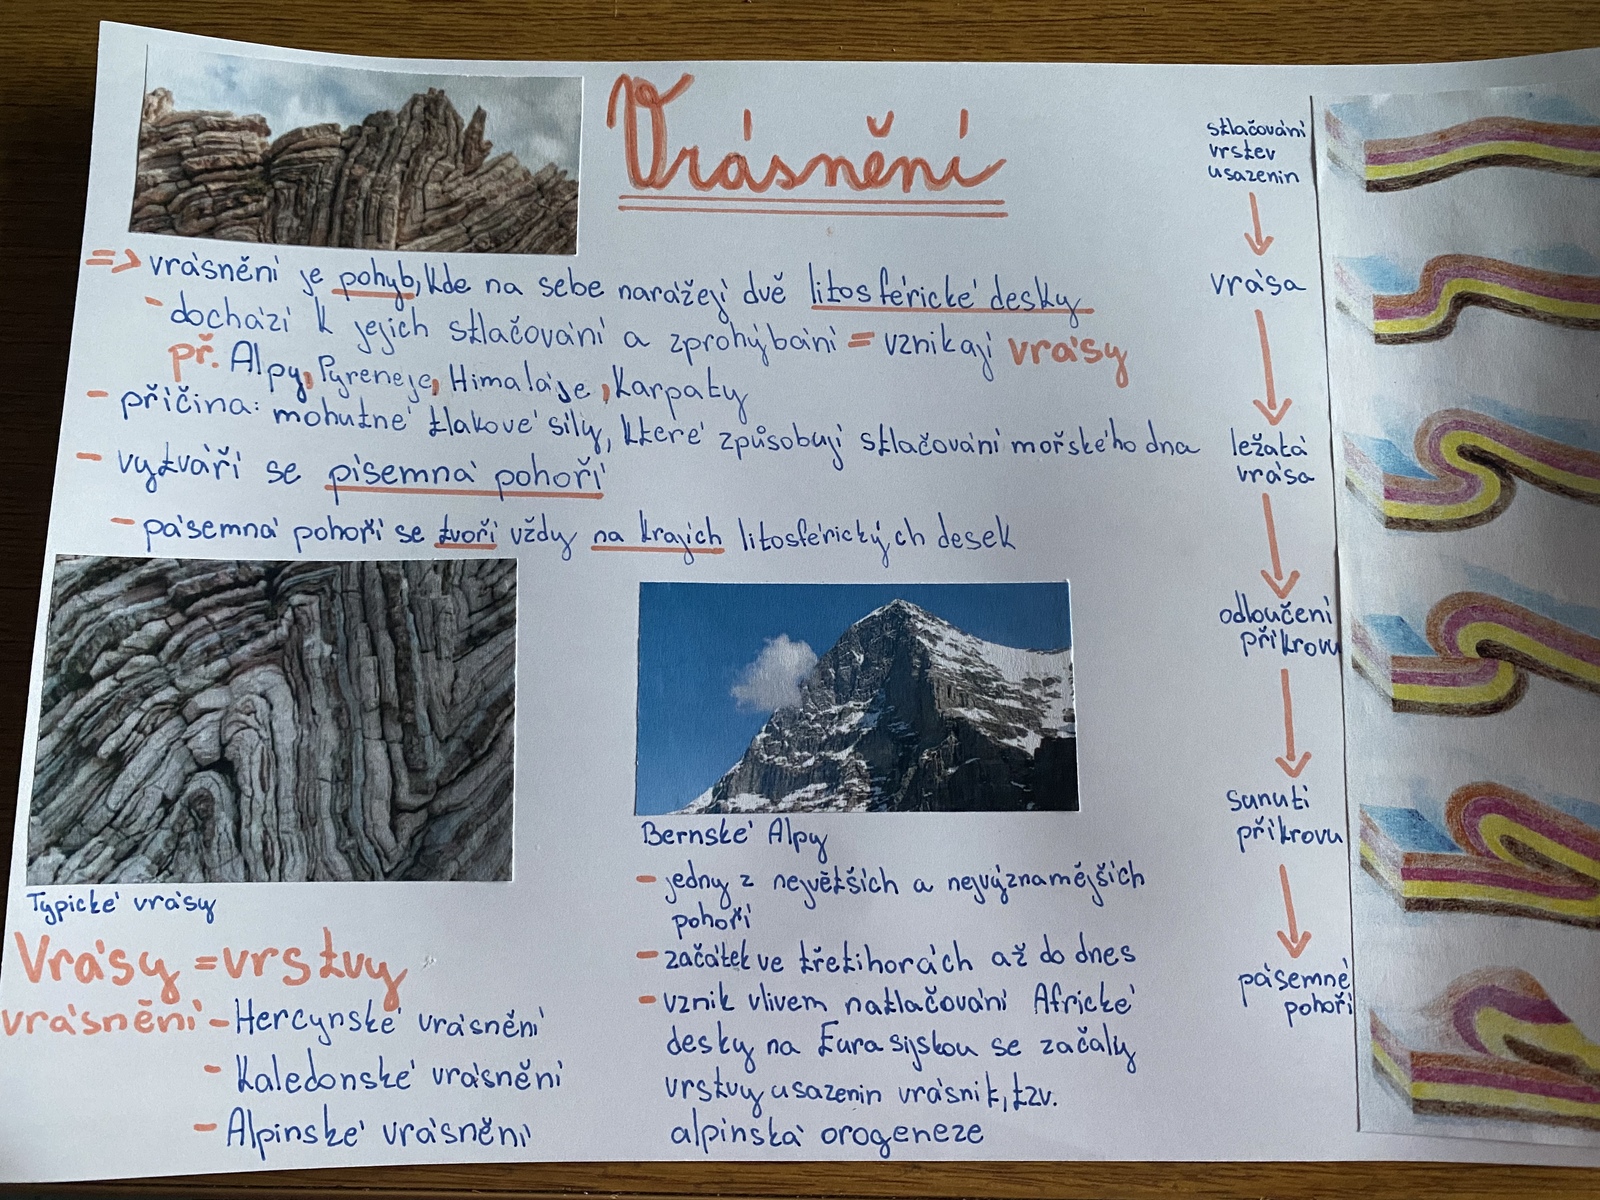 Vrásnění
=> vrásnění je pohyb, kde na sebe narážejí dvě litosférické desky
- dochází k jejich stlačování a zprohýbání = vznikají vrásy
př. Alpy, Pyreneje, Himaláje, Karpaty
- příčina: mohutné tlakové síly, které způsobují stlačování mořského dna
- vytváří se písemná pohoří
- pásemná pohoří se tvoří vždy na krajích litosférických desek
Typické vrásy
Vrásy = vrstvy
vrásnění - Hercynské vrásnění
- Kaledonské vrásnění
- Alpinské vrásnění
Bernské Alpy
- jedny z největších a nejvýznamějších
pohoří
- začátek ve třetihorách až do dnes
- vznik vlivem natlačování Africké
desky na Eurasijskou se začaly
vrstvy usazenin vrásnit, tzv.
alpinská orogeneze
stlačování
vrstev
usazenin
vrása
ležatá
vrása
odloučení
příkrovu
sunutí
příkrovu
pásemné
pohoří